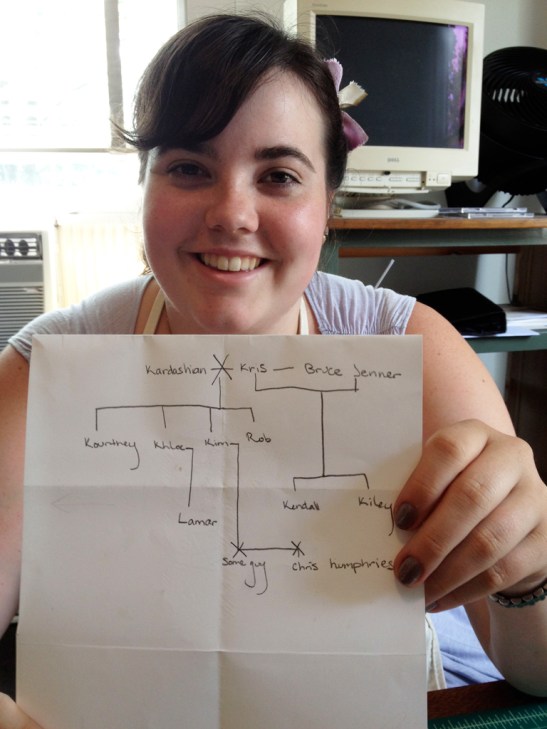 Kardashian Kris — Bruce Jenner
Kourtney Khloe Kim Rob
Kendall Kiley
Lamar
Some guy Chris humphries